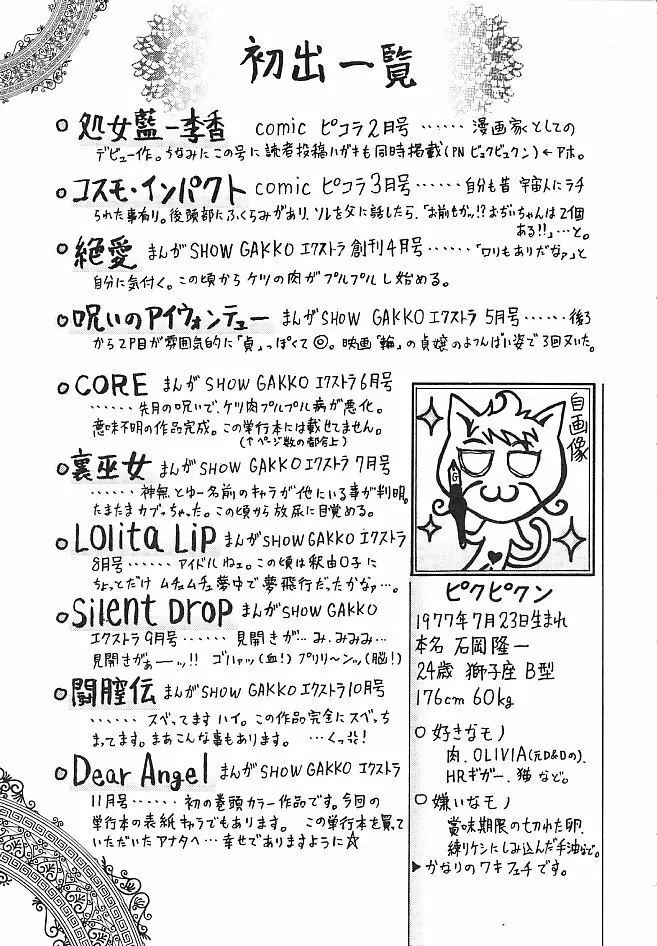 初出一覧
○処女藍－李香 comic ピコラ2月号 ‥‥‥ 漫画家としての
デビュー作。ちなみにこの号に読者投稿ハガキも同時掲載(PN ピュクピュクン)←アホ。
○コスモ・インパクト comic ピコラ3月号 ‥‥‥自分も昔宇宙人にラチ
られた事有り。後頭部にふくらみがあり、ソレを父に話したら、「お前もかッ!?おぢいちゃんは2個
ある!!」…と。
○絶愛 まんがSHOW GAKKO エクストラ 創刊4月号‥‥‥「ロリもありだなァ」と
自分に気付く。この頃からケツの肉がプルプルし始める。
○呪いのアイウォンチュー まんがSHOW GAKKO エクストラ 5月号‥‥‥後ろ
から2P目が雰囲気的に「貞」っぽくて◎。映画「輪」の貞嬢のよつんばい姿で3回ヌいた。
○CORE まんがSHOW GAKKO エクストラ6月号
‥‥‥先月の呪いで、ケツ肉プルプル病が悪化。
意味不明の作品完成。この単行本には載せてません。
(↑ページ数の都合上)
○裏巫女 まんがSHOW GAKKO エクストラ 7月号
‥‥‥神無とゆー名前のキャラが他にいる事が判明。
たまたまカブっちゃった。この頃から放尿に目覚める。
○Lolita Lip まんがSHOW GAKKO エクストラ
8月号‥‥‥アイドルねェ。この頃は釈由○子に
ちょっとだけ ムチュムチュ夢中で夢飛行だったかなァ…。
○Silent Drop まんがSHOW GAKKO
エクストラ9月号‥‥‥ 見開きが…み、みみみ…
見開きがぁーッ!! ゴハァッ(血!)プリリ～ンッ(脳!)
○闘膣伝 まんがSHOW GAKKO エクストラ10月号
‥‥‥スベってます ハイ。この作品完全にスベっち
まってます。まあこんな事もあります。 …くっ!
○Dear Angel まんがSHOW GAKKO エクストラ
11月号‥‥‥初の巻頭カラー作品です。今回の
単行本の表紙キャラでもあります。 この単行本を買って
いただいたアナタへ…幸せでありますように☆
自画像
G
ピクピクン
1977年7月23日生まれ
本名 石岡隆一
24歳 獅子座 B型
176cm 60kg
○好きなモノ
肉、OLIVIA(元D&Dの)、
HRギガー、猫 など。
○嫌いなモノ
賞味期限の切れた卵、
練りケシにしみ込んだ手油など。
▶かなりのワキフェチです。